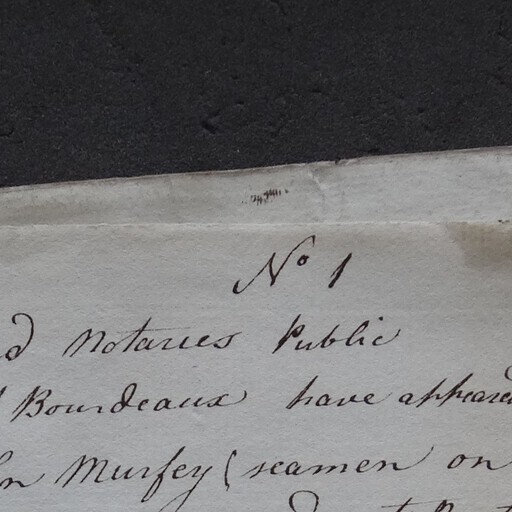 No 1
notaries Public
Bourdeaux have appeared
Murfey (seamen on